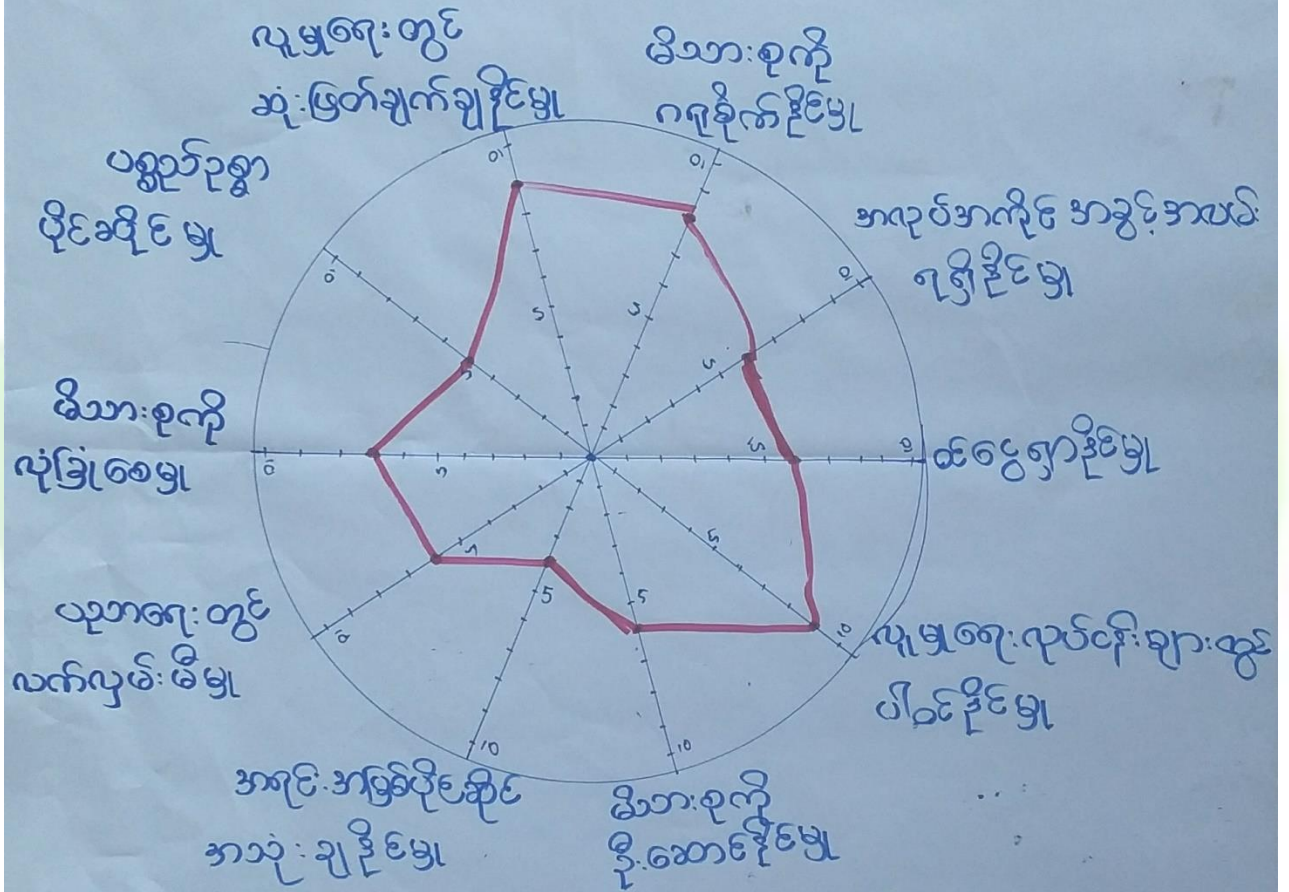 လူမှုရေးတွင်
ဆုံးဖြတ်ချက်ချနိုင်မှု
မိသားစုကို
ဂရုစိုက်နိုင်မှု
အလုပ်အကိုင် အခွင့်အလမ်း
ရရှိနိုင်မှု
ဝင်ငွေရှာနိုင်မှု
လူမှုရေးလုပ်ငန်းများတွင်
ပါဝင်နိုင်မှု
မိသားစုကို
ဦးဆောင်နိုင်မှု
အရင်းအမြစ်ပိုင်ဆိုင်
အသုံးချနိုင်မှု
ပညာရေးတွင်
လက်လှမ်းမီမှု
မိသားစုကို
လုံခြုံစေမှု
ပစ္စည်ဥစ္စာ
ပိုင်ဆိုင်မှု
10
5
10
5
10
5
10
5
10
5
10
5
10
5
10
5
10
5
10
5